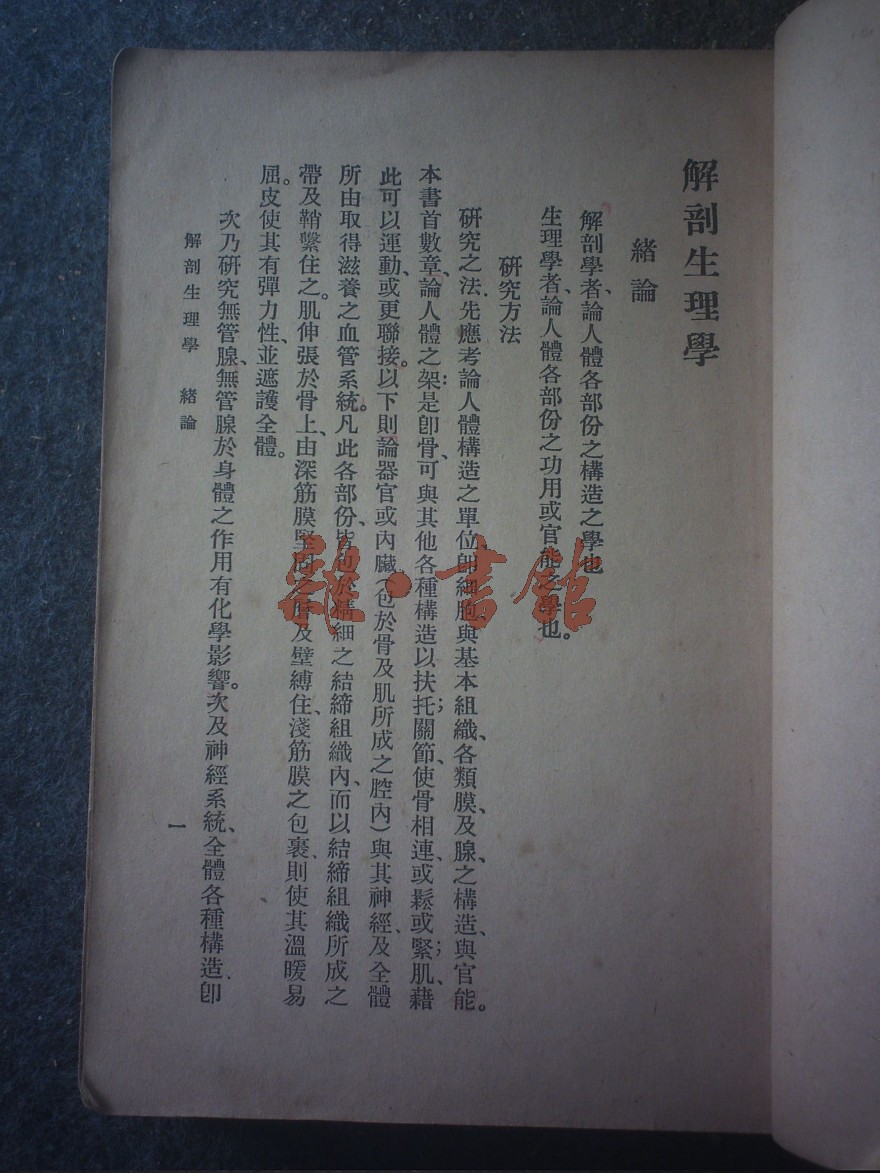 解剖生理學
緒論
解剖學者、論人體各部份之構造之學也
生理學者、論人體各部份之功用或官能之學也。
研究方法
研究之法、先應考論人體構造之單位、即細胞、與基本組織、各類膜、及腺、之構造、與官能。
本書首數章、論人體之架：是卽骨、可與其他各種構造以扶托；關節、使骨相連、或鬆或緊；肌、藉
此可以運動、或更聯接。以下則論器官或內臟（包於骨及肌所成之腔內）與其神經、及全體
所由取得滋養之血管系統。凡此各部份、皆包於精細之結締組織內、而以結締組織所成之
帶及鞘繫住之。肌伸張於骨上、由深筋膜堅固之層及壁縛住、淺筋膜之包裹、則使其溫暖易
屈。皮使其有彈力性、並遮護全體。
次乃研究無管腺、無管腺於身體之作用有化學影響。次及神經系統、全體各種構造、卽
解剖生理學 緒論
一
雜·書館